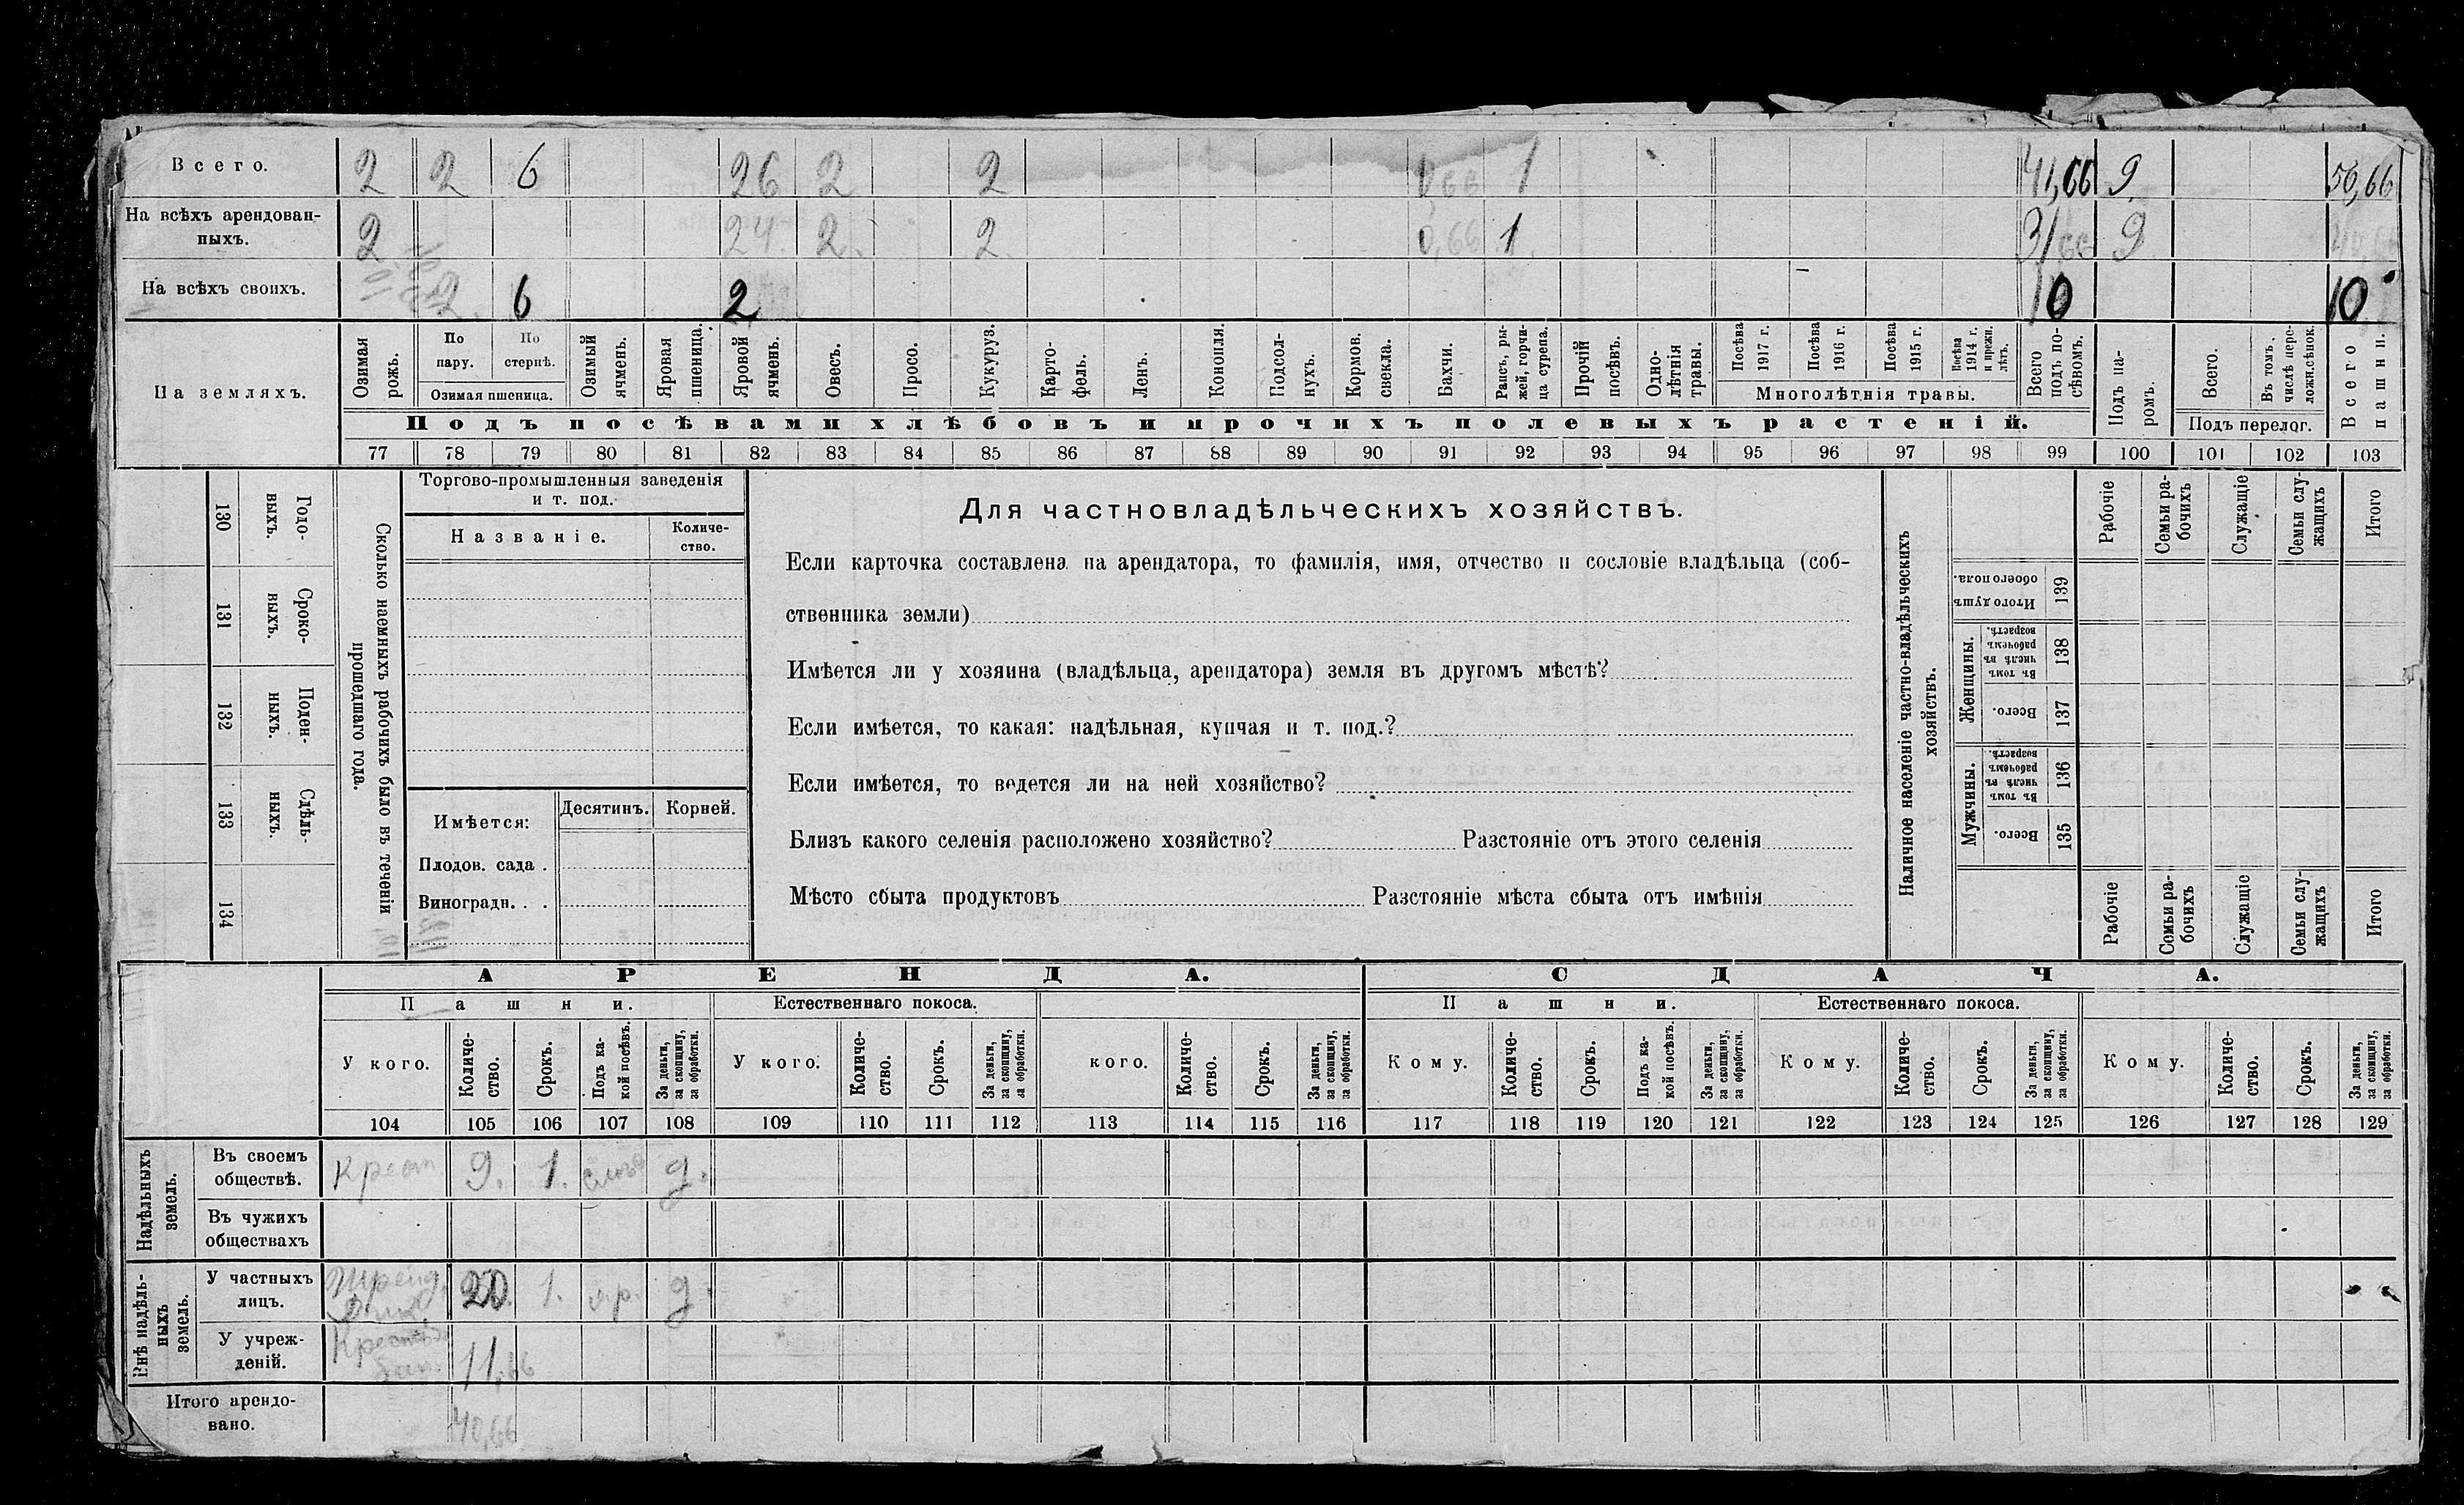 Всего. 2 2 6 26 2 2 0,66 1 41,66 9. 50,66
На всѣхъ арендован-
ныхъ. 2 24. 2. 2. 0,66 1. 31,66 9 40,66
На всѣхъ своихъ. 2. 6 2 10 10
На земляхъ.
Озимая рожь.
По пару.
По стернѣ.
Озимая пшеница.
Озимый ячмень.
Яровая пшеница.
Яровой ячмень.
Овесъ.
Просо.
Кукуруз.
Карто-
фель.
Ленъ.
Конопля.
Подсол-
нухъ.
Кормов.
свекла.
Бахчи.
Рапсъ, ры-
жей, горчи-
ца сурепа.
Прочій
посѣвъ.
Одно-
лѣтнія
травы.
Посѣва
1917 г.
Посѣва
1916 г.
Посѣва
1915 г.
Посѣва
1914 г.
и прежн.
лѣтъ.
Многолѣтнія травы.
Всего
подъ по-
сѣвомъ.
Подъ па-
ромъ.
Всего.
Въ томъ
числѣ пере-
ложн.сѣнок.
Подъ перелог.
Всего
пашни.
Подъ посѣвами хлѣбовъ и прочихъ полевыхъ растеній.
77 78 79 80 81 82 83 84 85 86 87 88 89 90 91 92 93 94 95 96 97 98 99 100 101 102 103
130 Годо-
выхъ.
131 Сроко-
выхъ.
132 Поден-
ныхъ.
133 Сдѣль-
ныхъ.
134
Сколько наемныхъ рабочихъ было въ теченіи
прошедшаго года.
Торгово-промышленныя заведенія
и т. под.
Названіе.
Количе-
ство.
Имѣется: Десятинъ. Корней.
Плодов. сада .
Виноградн. . .
Для частновладѣльческихъ хозяйствъ.
Если карточка составлена на арендатора, то фамилія, имя, отчество и сословіе владѣльца (соб-
ственника земли)
Имѣется ли у хозяина (владѣльца, арендатора) земля въ другомъ мѣстѣ?
Если имѣется, то какая: надѣльная, купчая и т. под.?
Если имѣется, то ведется ли на ней хозяйство?
Близъ какого селенія расположено хозяйство? Разстояніе отъ этого селенія
Мѣсто сбыта продуктовъ Разстояніе мѣста сбыта отъ имѣнія
Наличное населеніе частно-владѣльческихъ
хозяйствъ.
Рабочіе
Семьи ра-
бочихъ
Служащіе
Семьи слу-
жащихъ
Итого
Итого душъ
обоего пола.
139
Женщины.
Въ томъ
числѣ въ
рабочемъ
возрастѣ.
138
Всего.
137
Мужчины.
Въ томъ
числѣ въ
рабочемъ
возрастѣ.
136
Всего.
135
Рабочіе
Семьи ра-
бочихъ
Служащіе
Семьи слу-
жащихъ
Итого
АРЕНДА. СДАЧА.
Пашни. Естественнаго покоса. Пашни. Естественнаго покоса.
У кого.
Количе-
ство.
Срокъ.
Подъ ка-
кой посѣвъ.
За деньги,
за скопщину,
за обработки.
У кого.
Количе-
ство.
Срокъ.
За деньги,
за скопщину,
за обработки.
кого.
Количе-
ство.
Срокъ.
За деньги,
за скопщину,
за обработки.
Кому.
Количе-
ство.
Срокъ.
Подъ ка-
кой посѣвъ.
За деньги,
за скопщину,
за обработки.
Кому.
Количе-
ство.
Срокъ.
За деньги,
за скопщину,
за обработки.
Кому.
Количе-
ство.
Срокъ.
За деньги,
за скопщину,
за обработки.
104 105 106 107 108 109 110 111 112 113 114 115 116 117 118 119 120 121 122 123 124 125 126 127 128 129
Надѣльныхъ
земель.
Въ своемъ
обществѣ. Крест 9. 1. д.
Въ чужихъ
обществахъ
Внѣ надѣль-
ныхъ
земель.
У частныхъ
лицъ. 20. 1. яр. д.
У учреж-
деній. 11,66
Итого арендо-
вано. 40,66